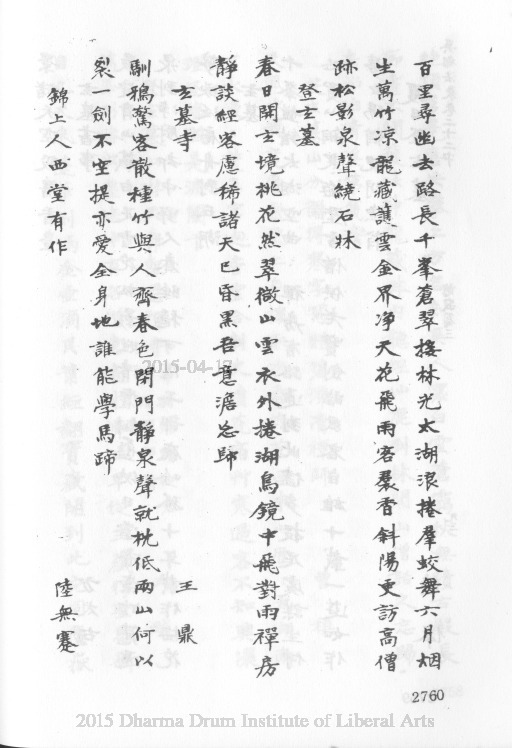 百里尋幽去路長千峯蒼翠接林光太湖浪捲羣蛟舞六月烟
生萬竹凉龍藏護雲金界净天花飛雨客裳香斜陽更訪高僧
跡松影泉聲繞石牀
登玄墓
春日開玄境桃花然翠微山雲衣外捲湖鳥鏡中飛對雨禪房
靜談經客慮稀諸天已昏黑吾意澹忘歸
玄墓寺 王鼎
馴鴉驚客散種竹與人齊春色閉門靜泉聲就枕低兩山何以
裂一劍不空提亦愛全身地誰能學馬蹄
錦上人西堂有作 陸無蹇
2760
2015-04-17
2015 Dharma Drum Institute of Liberal Arts